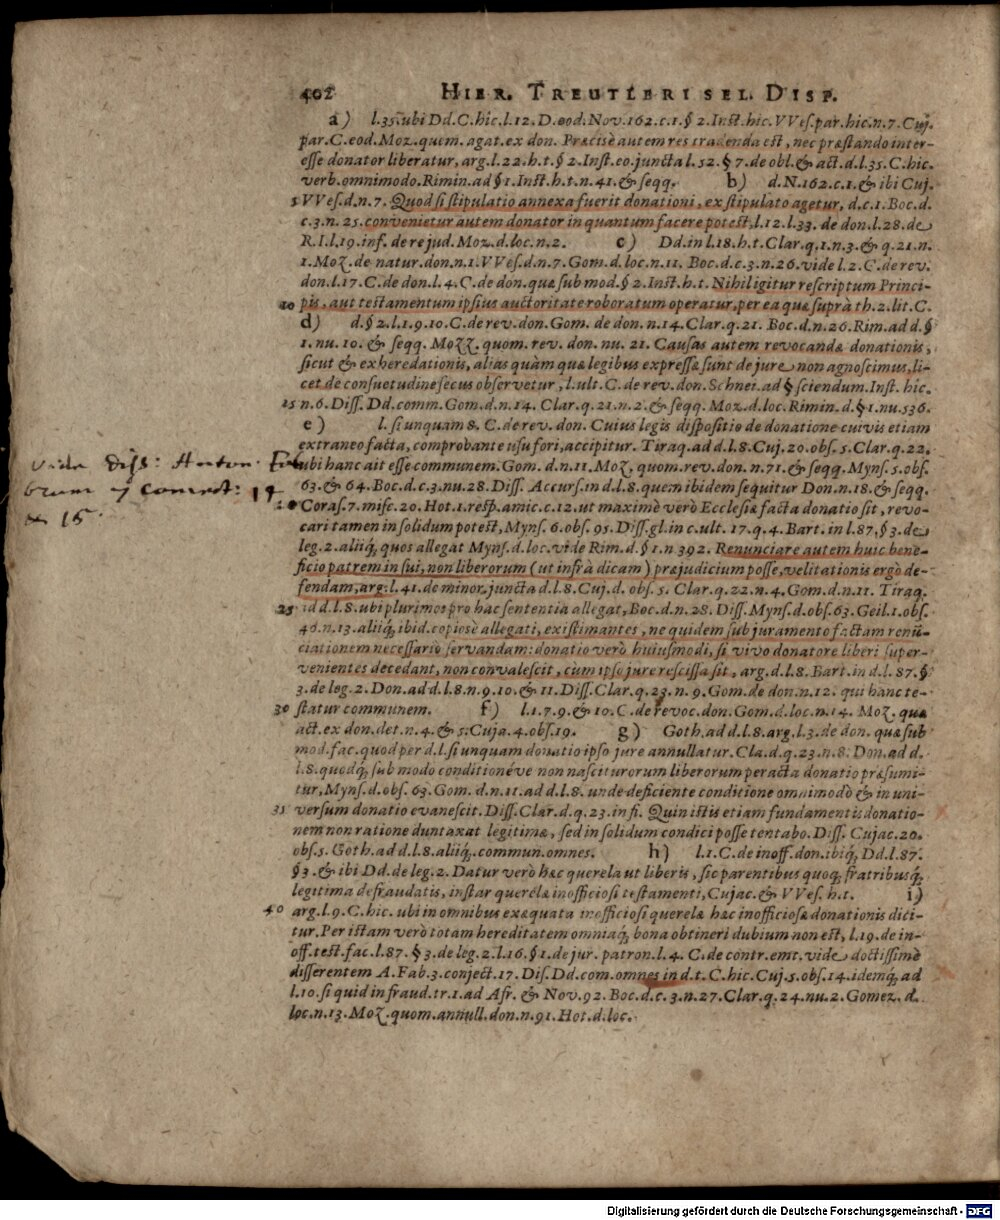 402 HIER. TREUTLERI SEL. DISP.
a) l.35. ubi Dd. C. hic. l.12. D. eod. Nov. 162. c.1. § 2. Inst. hic. VVes. par. hic. n. 7. Cuj.
par. C. eod. Moz. quem. agat. ex don. Præcisè autem res tradenda est, nec præstando inter-
esse donator liberatur, arg. l.22. h.t. § 2. Inst. eo. juncta l. 52. § 7. de obl. & act. d. l.35. C. hic.
verb. omnimodo. Rimin. ad § 1. Inst. h.t. n. 41. & seqq. b) d. N. 162. c.1. & ibi Cuj.
5 VVes. d. n. 7. Quod si stipulatio annexa fuerit donationi, ex stipulato agetur, d. c.1. Boc. d.
c. 3. n. 25. convenietur autem donator in quantum facere potest, l.12. l.33. de don. l.28. de
R. I. l.19. inf. de re jud. Moz. d. loc. n. 2. c) Dd. in l.18. h.t. Clar. q. 1. n. 3. & q. 21. n.
1. Moz. de natur. don. n. 1. VVes. d. n. 7. Gom. d. loc. n. 11. Boc. d. c. 3. n. 26. vide l. 2. C. de rev.
don. l.17. C. de don. l. 4. C. de don. quæ sub mod. § 2. Inst. h.t. Nihil igitur rescriptum Princi-
10 pis, aut testamentum ipsius auctoritate roboratum operatur, per ea quæ suprà th. 2. lit. C.
d) d. § 2. l.1. 9. 10. C. de rev. don. Gom. de don. n. 14. Clar. q. 21. Boc. d. n. 26. Rim. ad d. §
1. nu. 10. & seqq. Mozz. quom. rev. don. nu. 21. Causas autem revocandæ donationis,
sicut & exheredationis, alias quàm quæ legibus expressæ sunt de jure non agnoscimus, li-
cet de consuetudine secus observetur, l. ult. C. de rev. don. Schnei. ad § sciendum. Inst. hic.
15 n. 6. Diss. Dd. comm. Gom. d. n. 14. Clar. q. 21. n. 2. & seqq. Moz. d. loc. Rimin. d. § 1. nu. 536.
e) l. si unquam 8. C. de rev. don. Cuius legis dispositio de donatione cuivis etiam
extraneo facta, comprobante usu fori, accipitur. Tiraq. ad d. l. 8. Cuj. 20. obs. 5. Clar. q. 22.
ubi hanc ait esse communem. Gom. d. n. 11. Moz. quom. rev. don. n. 71. & seqq. Myns. 5. obs.
63. & 64. Boc. d. c. 3. nu. 28. Diss. Accurs. in d. l. 8. quem ibidem sequitur Don. n. 18. & seqq.
20 Coras. 7. misc. 20. Hot. 1. resp. amic. c. 12. ut maximè verò Ecclesiæ facta donatio sit, revo-
cari tamen in solidum potest, Myns. 6. obs. 95. Diss. gl. in c. ult. 17. q. 4. Bart. in l. 87. § 3. de
leg. 2. aliiq́, quos allegat Myns. d. loc. vide Rim. d. § 1. n. 392. Renunciare autem huic bene-
ficio patrem in sui, non liberorum (ut infrà dicam) præjudicium posse, velitationis ergò de-
fendam, arg. l. 41. de minor. juncta d. l. 8. Cuj. d. obs. 5. Clar. q. 22. n. 4. Gom. d. n. 11. Tiraq.
25 ad d. l. 8. ubi plurimos pro hac sententia allegat, Boc. d. n. 28. Diss. Myns. d. obs. 63. Geil. 1. obs.
40. n. 13. aliiq́, ibid. copiosè allegati, existimantes, ne quidem sub juramento factam renũ-
ciationem necessario servandam: donatio verò huiusmodi, si vivo donatore liberi super-
venientes decedant, non convalescit, cum ipso jure rescissa sit, arg. d. l. 8. Bart. in d. l. 87. §
3. de leg. 2. Don. ad d. l. 8. n. 9. 10. & 11. Diss. Clar. q. 23. n. 9. Gom. de don. n. 12. qui hanc te-
30 statur communem. f) l. 1. 7. 9. & 10. C. de revoc. don. Gom. d. loc. n. 14. Moz. quæ
act. ex don. det. n. 4. & 5. Cuja. 4. obs. 19. g) Goth. ad d. l. 8. arg. l. 3. de don. quæ sub
mod. fac. quod per d. l. si unquam donatio ipso jure annullatur. Cla. d. q. 23. n. 8. Don. ad d.
l. 8. quodq́, sub modo conditionéve non nasciturorum liberorum peracta donatio præsumi-
tur, Myns. d. obs. 63. Gom. d. n. 11. ad d. l. 8. unde deficiente conditione omnimodò & in uni-
35 versum donatio evanescit. Diss. Clar. d. q. 23. in fi. Quin istis etiam fundamentis donatio-
nem non ratione duntaxat legitimæ, sed in solidum condici posse tentabo. Diss. Cujac. 20.
obs. 5. Goth. ad d. l. 8. aliiq́, commun. omnes. h) l. 1. C. de inoff. don. ibiq́, Dd. l. 87.
§ 3. & ibi Dd. de leg. 2. Datur verò hæc querela ut liberis, sic parentibus quoq́, fratribusq́,
legitima defraudatis, instar querelæ inofficiosi testamenti, Cujac. & VVes. h.t. i)
40 arg. l. 9. C. hic. ubi in omnibus exæquata inofficiosi querelæ hæc inofficiosæ donationis dici-
tur. Per istam verò totam hereditatem omniaq́, bona obtineri dubium non est, l. 19. de in-
off. test. fac. l. 87. § 3. de leg. 2. l. 16. § 1. de jur. patron. l. 4. C. de contr. emt. vide doctissimè
disserentem A. Fab. 3. conject. 17. Dis. Dd. com. omnes in d. t. C. hic. Cuj. 5. obs. 14. idemq́, ad
l. 10. si quid in fraud. tr. 1. ad Afr. & Nov. 92. Boc. d. c. 3. n. 27. Clar. q. 24. nu. 2. Gomez. d.
loc. n. 13. Moz. quom. annull. don. n. 91. Hot. d. loc.
vide diss:
conject: 14
15.
Digitalisierung gefördert durch die Deutsche Forschungsgemeinschaft - DFG